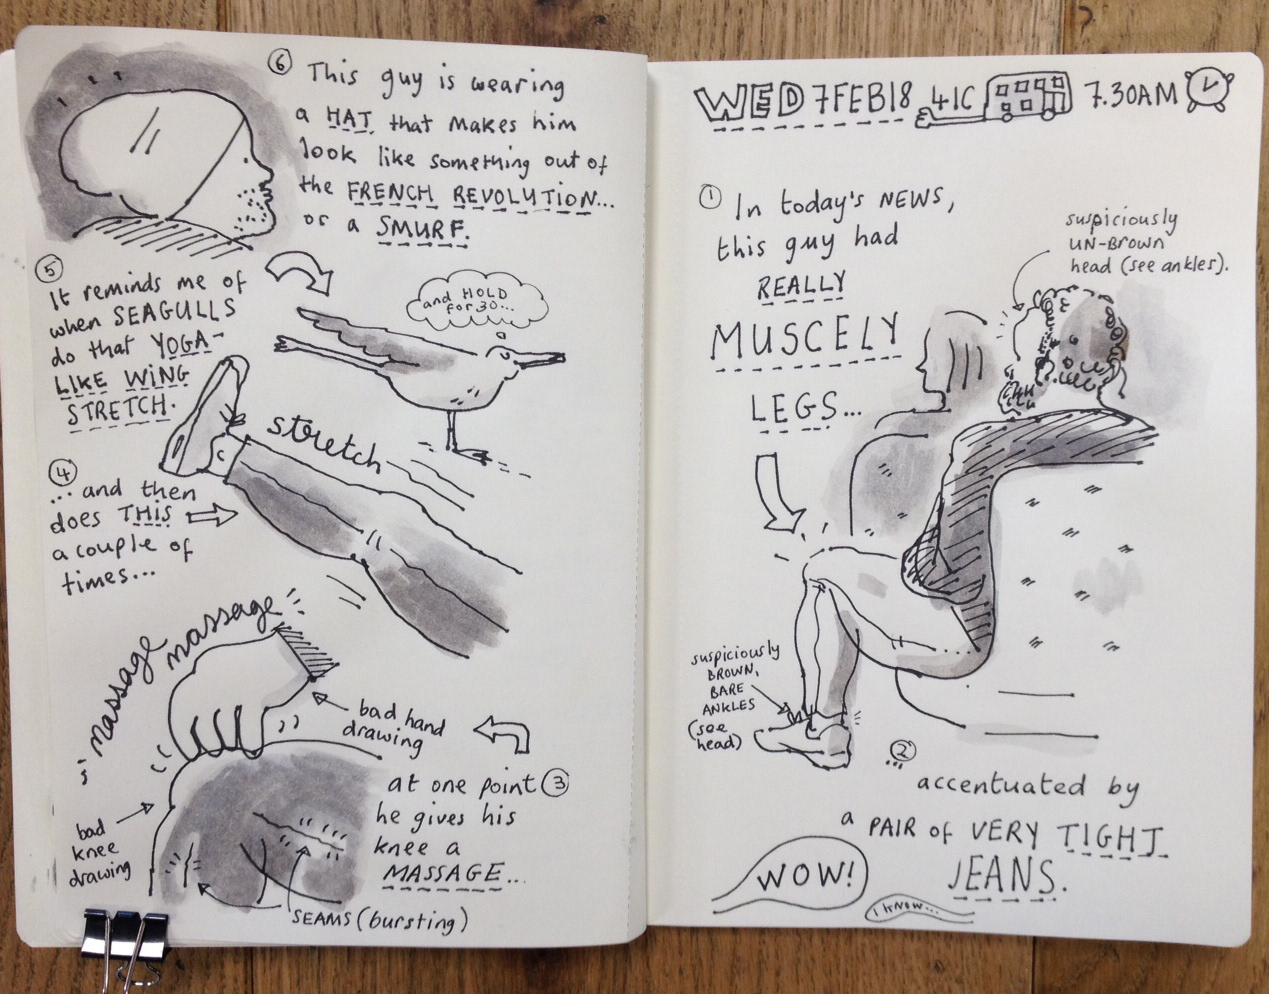 WED 7FEB18 41C 7.30AM
① In today's NEWS,
this guy had
REALLY
MUSCELY
LEGS...
suspiciously
UN-BROWN
head (see ankles).
suspiciously
BROWN,
BARE
ANKLES
(see
head)
②
... accentuated by
a PAIR of VERY TIGHT
JEANS.
WOW!
I KNOW...
at one point ③
he gives his
knee a
MASSAGE...
massage massage
bad hand
drawing
bad
knee
drawing
SEAMS (bursting)
④
... and then
does THIS
a couple of
times...
stretch
⑤
It reminds me of
when SEAGULLS
do that YOGA-
LIKE WING
STRETCH.
and HOLD
for 30...
⑥ This guy is wearing
a HAT that makes him
look like something out of
the FRENCH REVOLUTION...
or a SMURF.